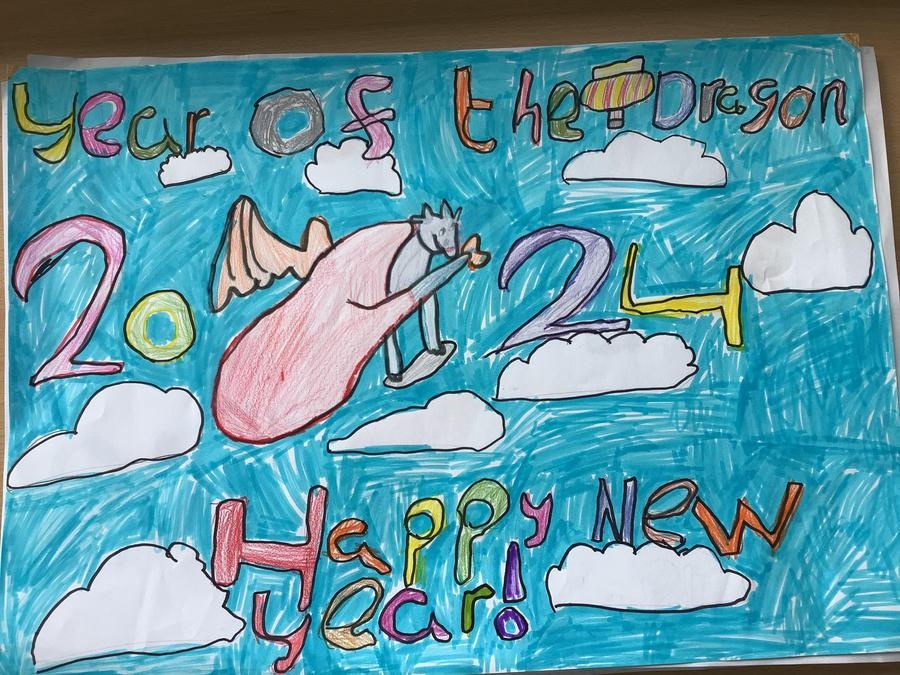 Year Of the Dragon
2024
Happy New
year!